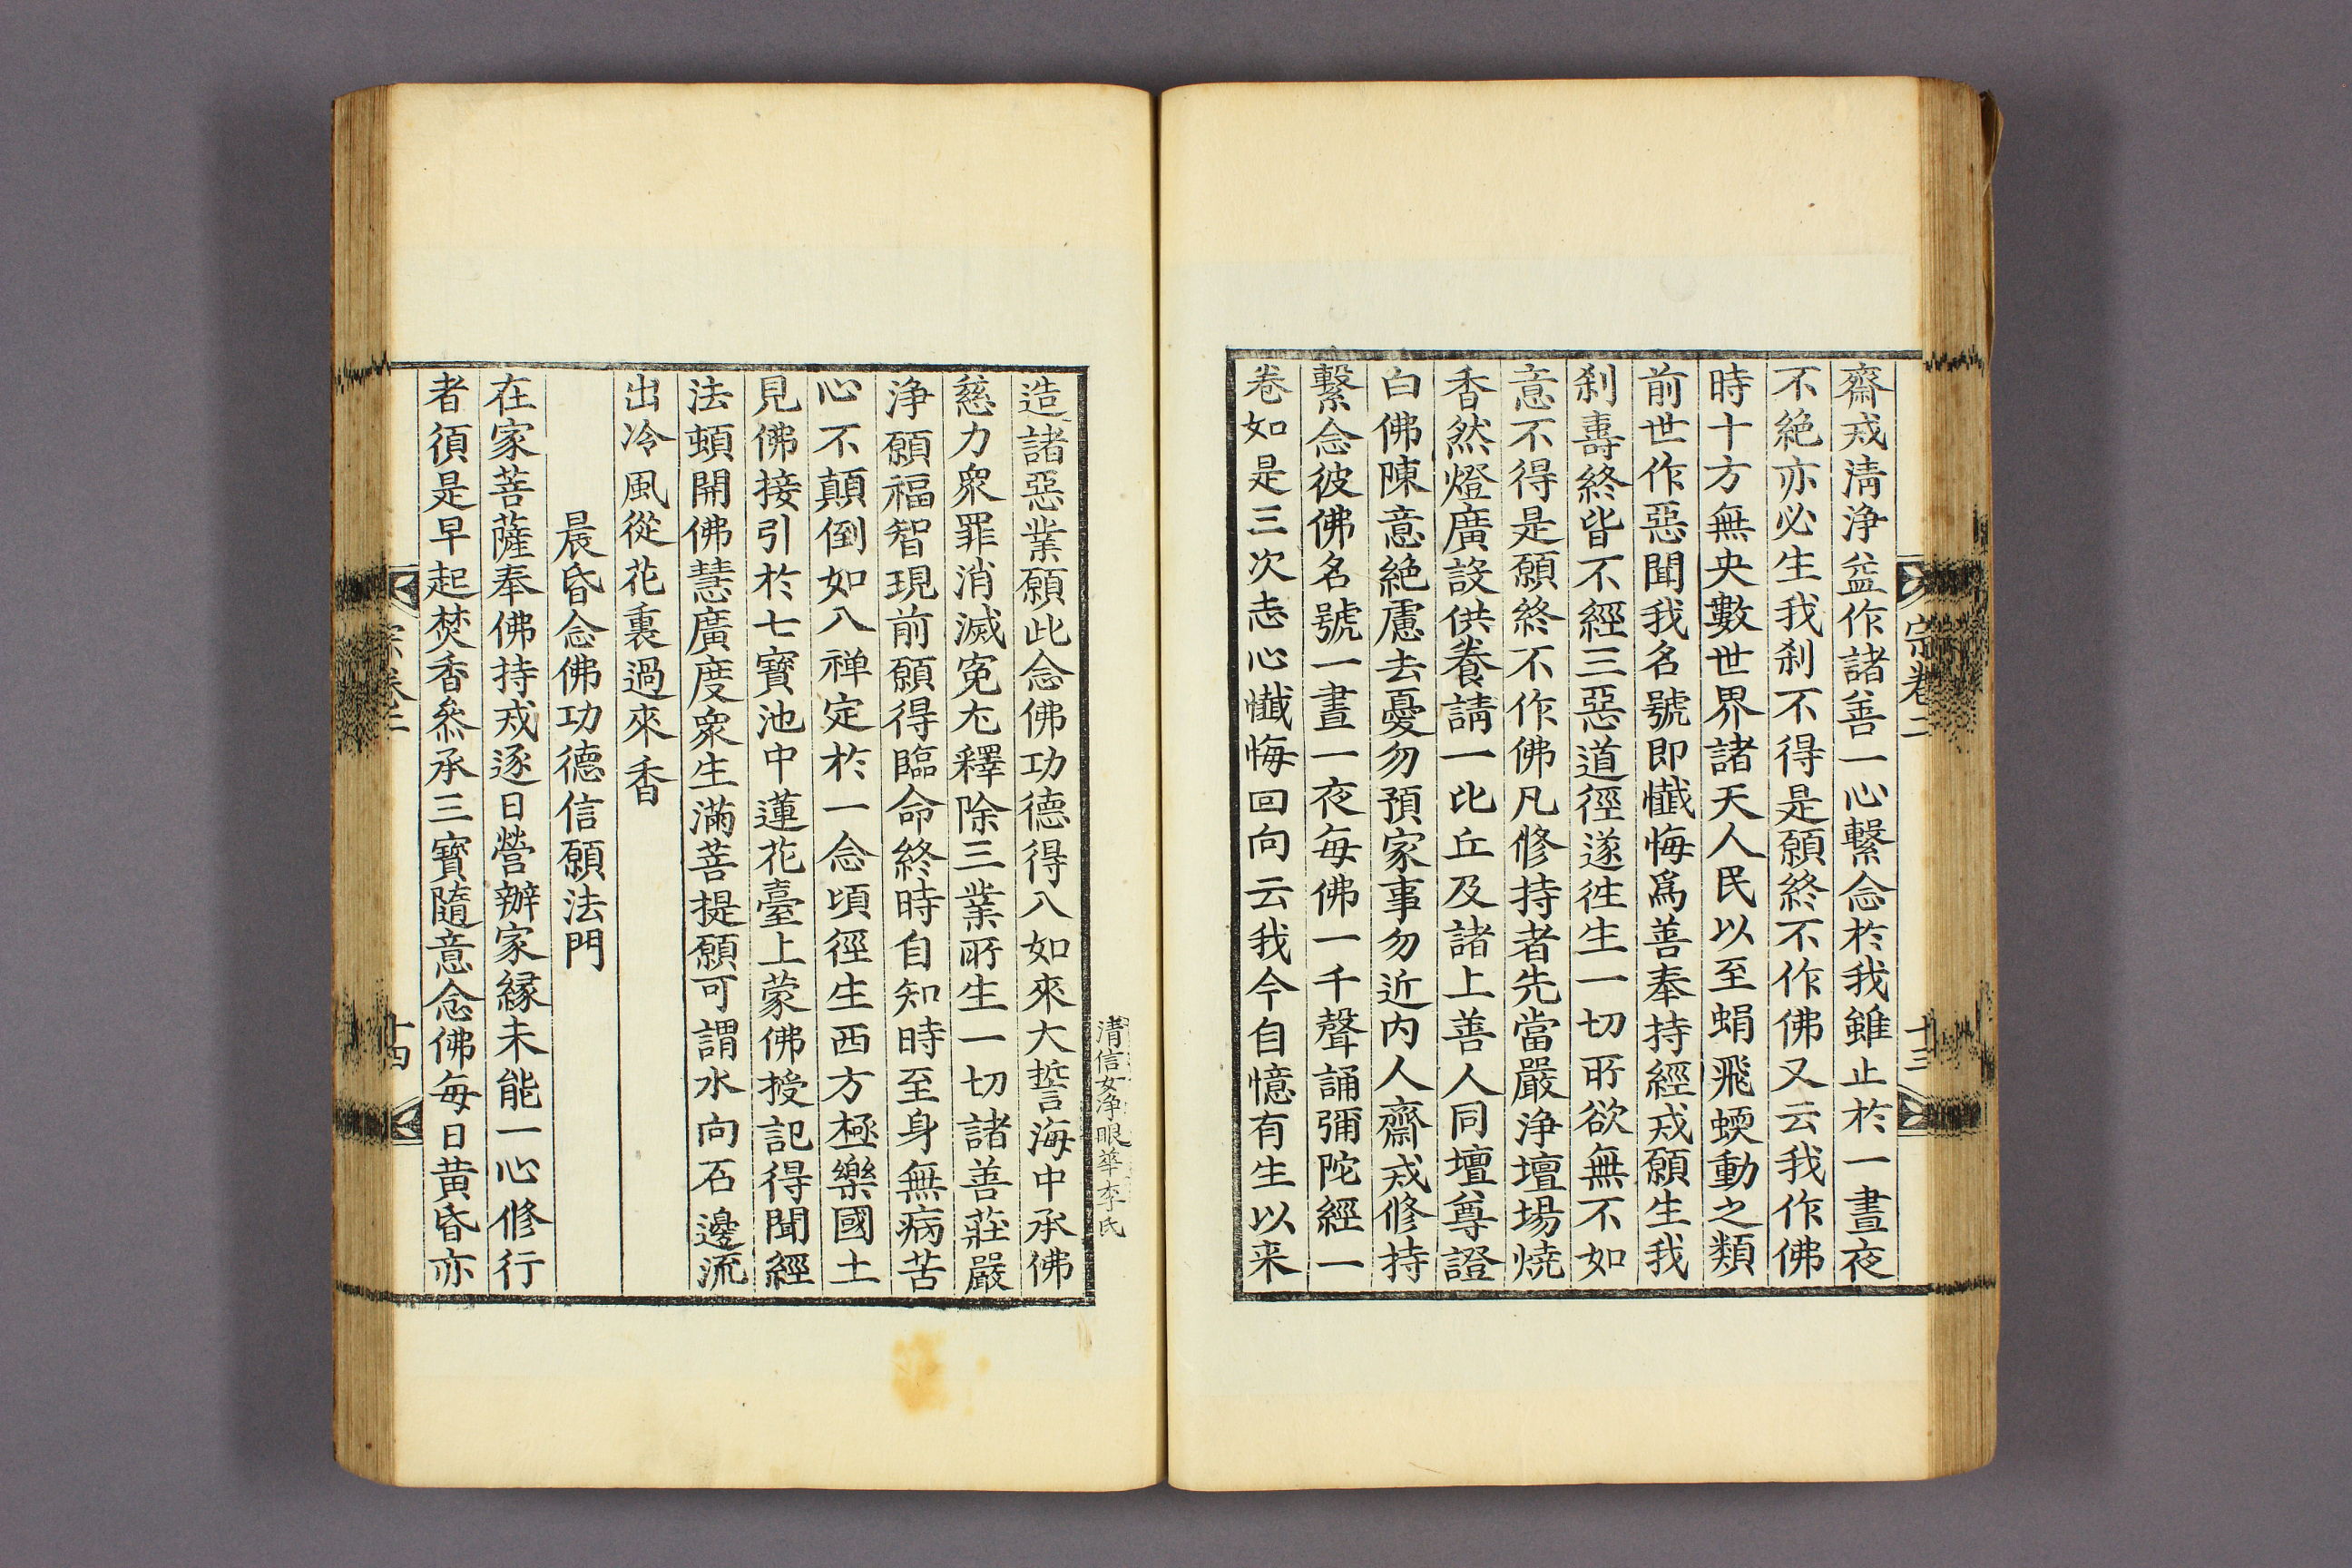 宗卷二
十三
齋戒淸淨益作諸善一心繫念於我雖止於一晝夜
不絶亦必生我刹不得是願終不作佛又云我作佛
時十方無央數世界諸天人民以至蜎飛蝡動之類
前世作惡聞我名號即懺悔爲善奉持經戒願生我
刹壽終皆不經三惡道徑遂徃生一切所欲無不如
意不得是願終不作佛凡修持者先當嚴淨壇場焼
香然燈廣設供養請一比丘及諸上善人同壇尊證
白佛陳意絶慮去憂勿預家事勿近内人齋戒修持
繫念彼佛名號一晝一夜每佛一千聲誦彌陀經一
卷如是三次志心懺悔回向云我今自憶有生以来
清信女淨眼華李氏
造諸惡業願此念佛功德得八如來大誓海中承佛
慈力衆罪消滅寃尤釋除三業所生一切諸善莊嚴
淨願福智現前願得臨命終時自知時至身無病苦
心不顛倒如八禅定於一念頃徑生西方極樂國土
見佛接引於七寶池中蓮花臺上蒙佛授記得聞經
法頓開佛慧廣度衆生滿菩提願可謂水向石邊流
出冷風從花裏過來香
晨昏念佛功德信願法門
在家菩薩奉佛持戒逐日營辦家緣未能一心修行
者須是早起焚香叅承三寶隨意念佛每日黄昏亦
宗卷二
十四